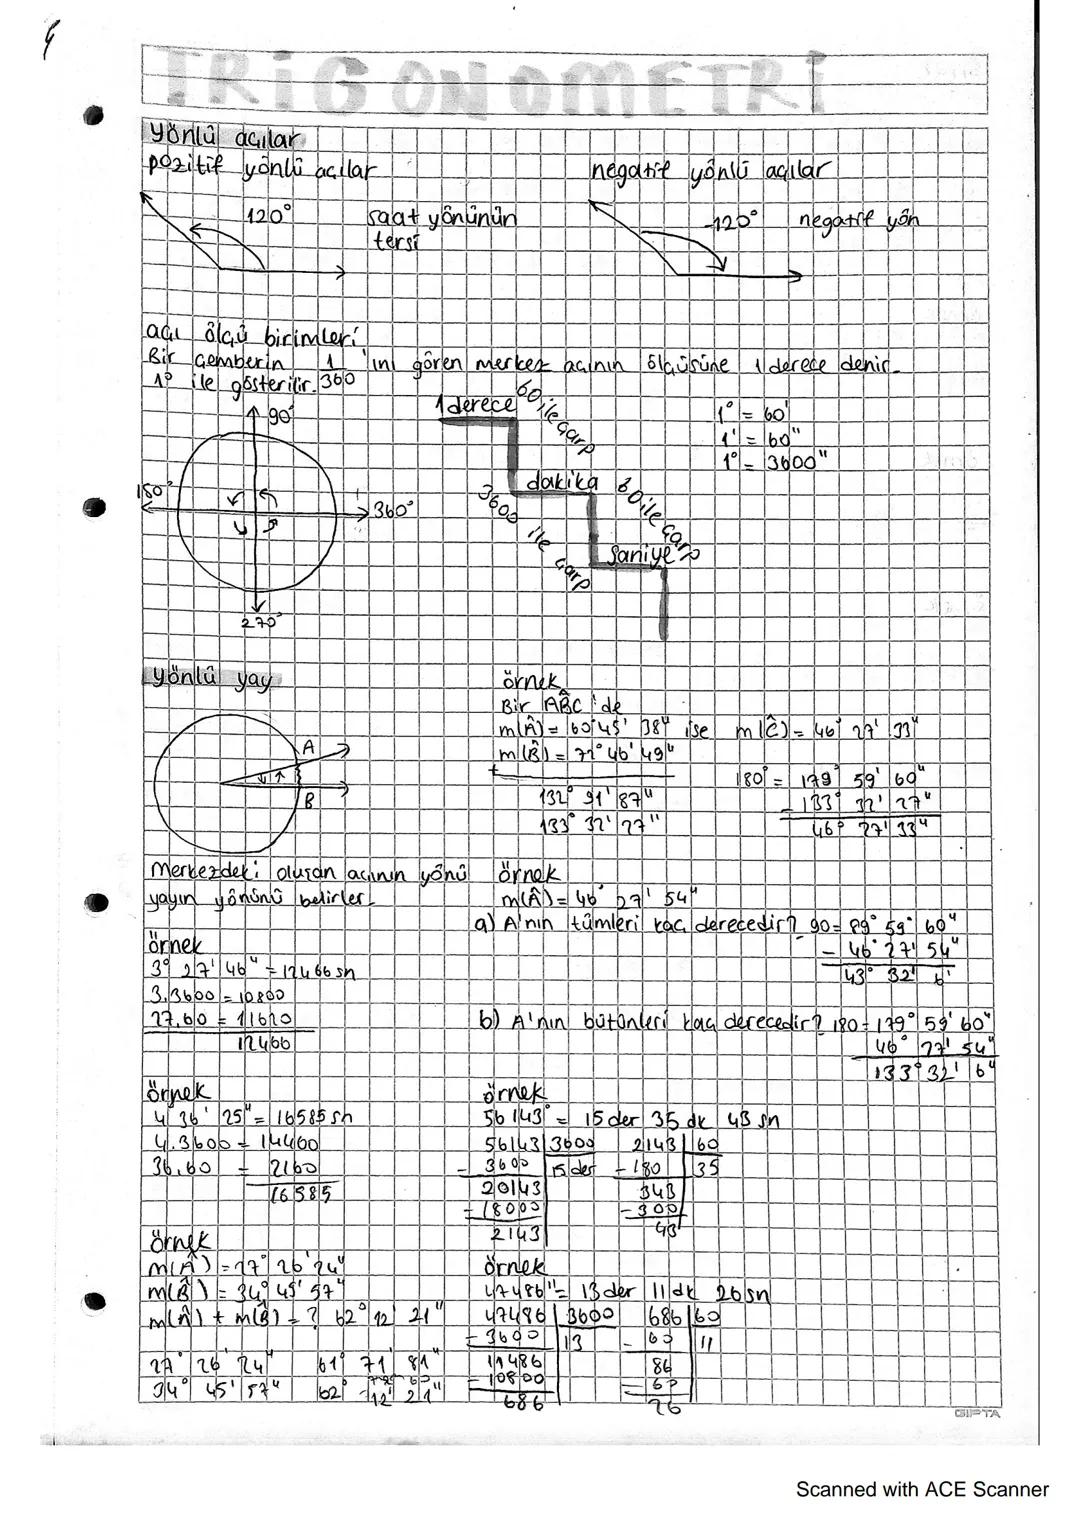 TRİGONOMETRİ
yönlü açılar
pozitif yönlü açılar
120°
saat yönünün
tersi
negatif yönlü açılar
-120°
negatif yön
açı ölçü birimleri
Bir çemberin 1/360 'ını gören merkez açının ölçüsüne 1 derece denir.
1° ile gösterilir.
90°
180°
360°
270°
1 derece
60 ile çarp
dakika
60 ile çarp
3600 ile çarp
saniye
1° = 60'
1' = 60"
1° = 3600"
yönlü yay
A
B
Merkezdeki oluşan açının yönü
yayın yönünü belirler.
örnek
Bir ABC 'de
m(Â) = 60° 45' 38" ise m(Ĉ) = 46° 27' 33"
m(B̂) = 72° 46' 49"
+
132° 91' 87"
133° 32' 27"
180° = 179° 59' 60"
- 133° 32' 27"
46° 27' 33"
örnek
3° 27' 46" = 12466 sn
3.3600 = 10800
27.60 = 1620
12466
örnek
m(Â) = 46° 27' 54"
a) A'nın tümleri kaç derecedir? 90 = 89° 59' 60"
- 46° 27' 54"
43° 32' 6'
b) A'nın bütünleri kaç derecedir? 180 = 179° 59' 60"
46° 27' 54"
133° 32' 6"
örnek
4 36' 25" = 16585 sn
4.3600 = 14400
36.60 = 2160
16585
örnek
56143" = 15 der 35 dk 43 sn
56143 3600
- 3600 15 der
20143
- 18000
2143
2143 60
- 180 35
343
- 300
43
örnek
m(Â) = 27° 26' 24"
m(B̂) = 34° 45' 57"
m(Â) + m(B̂) = ? 62° 12' 21"
27° 26' 24" 61° 71' 81"
34° 45' 57" 62° 12' 21"
örnek
47486" = 13 der 11 dk 26 sn
47486 3600
- 3600 13
11486
- 10800
686
686 60
- 60 11
86
- 60
26
GIPTA
Scanned with ACE Scanner